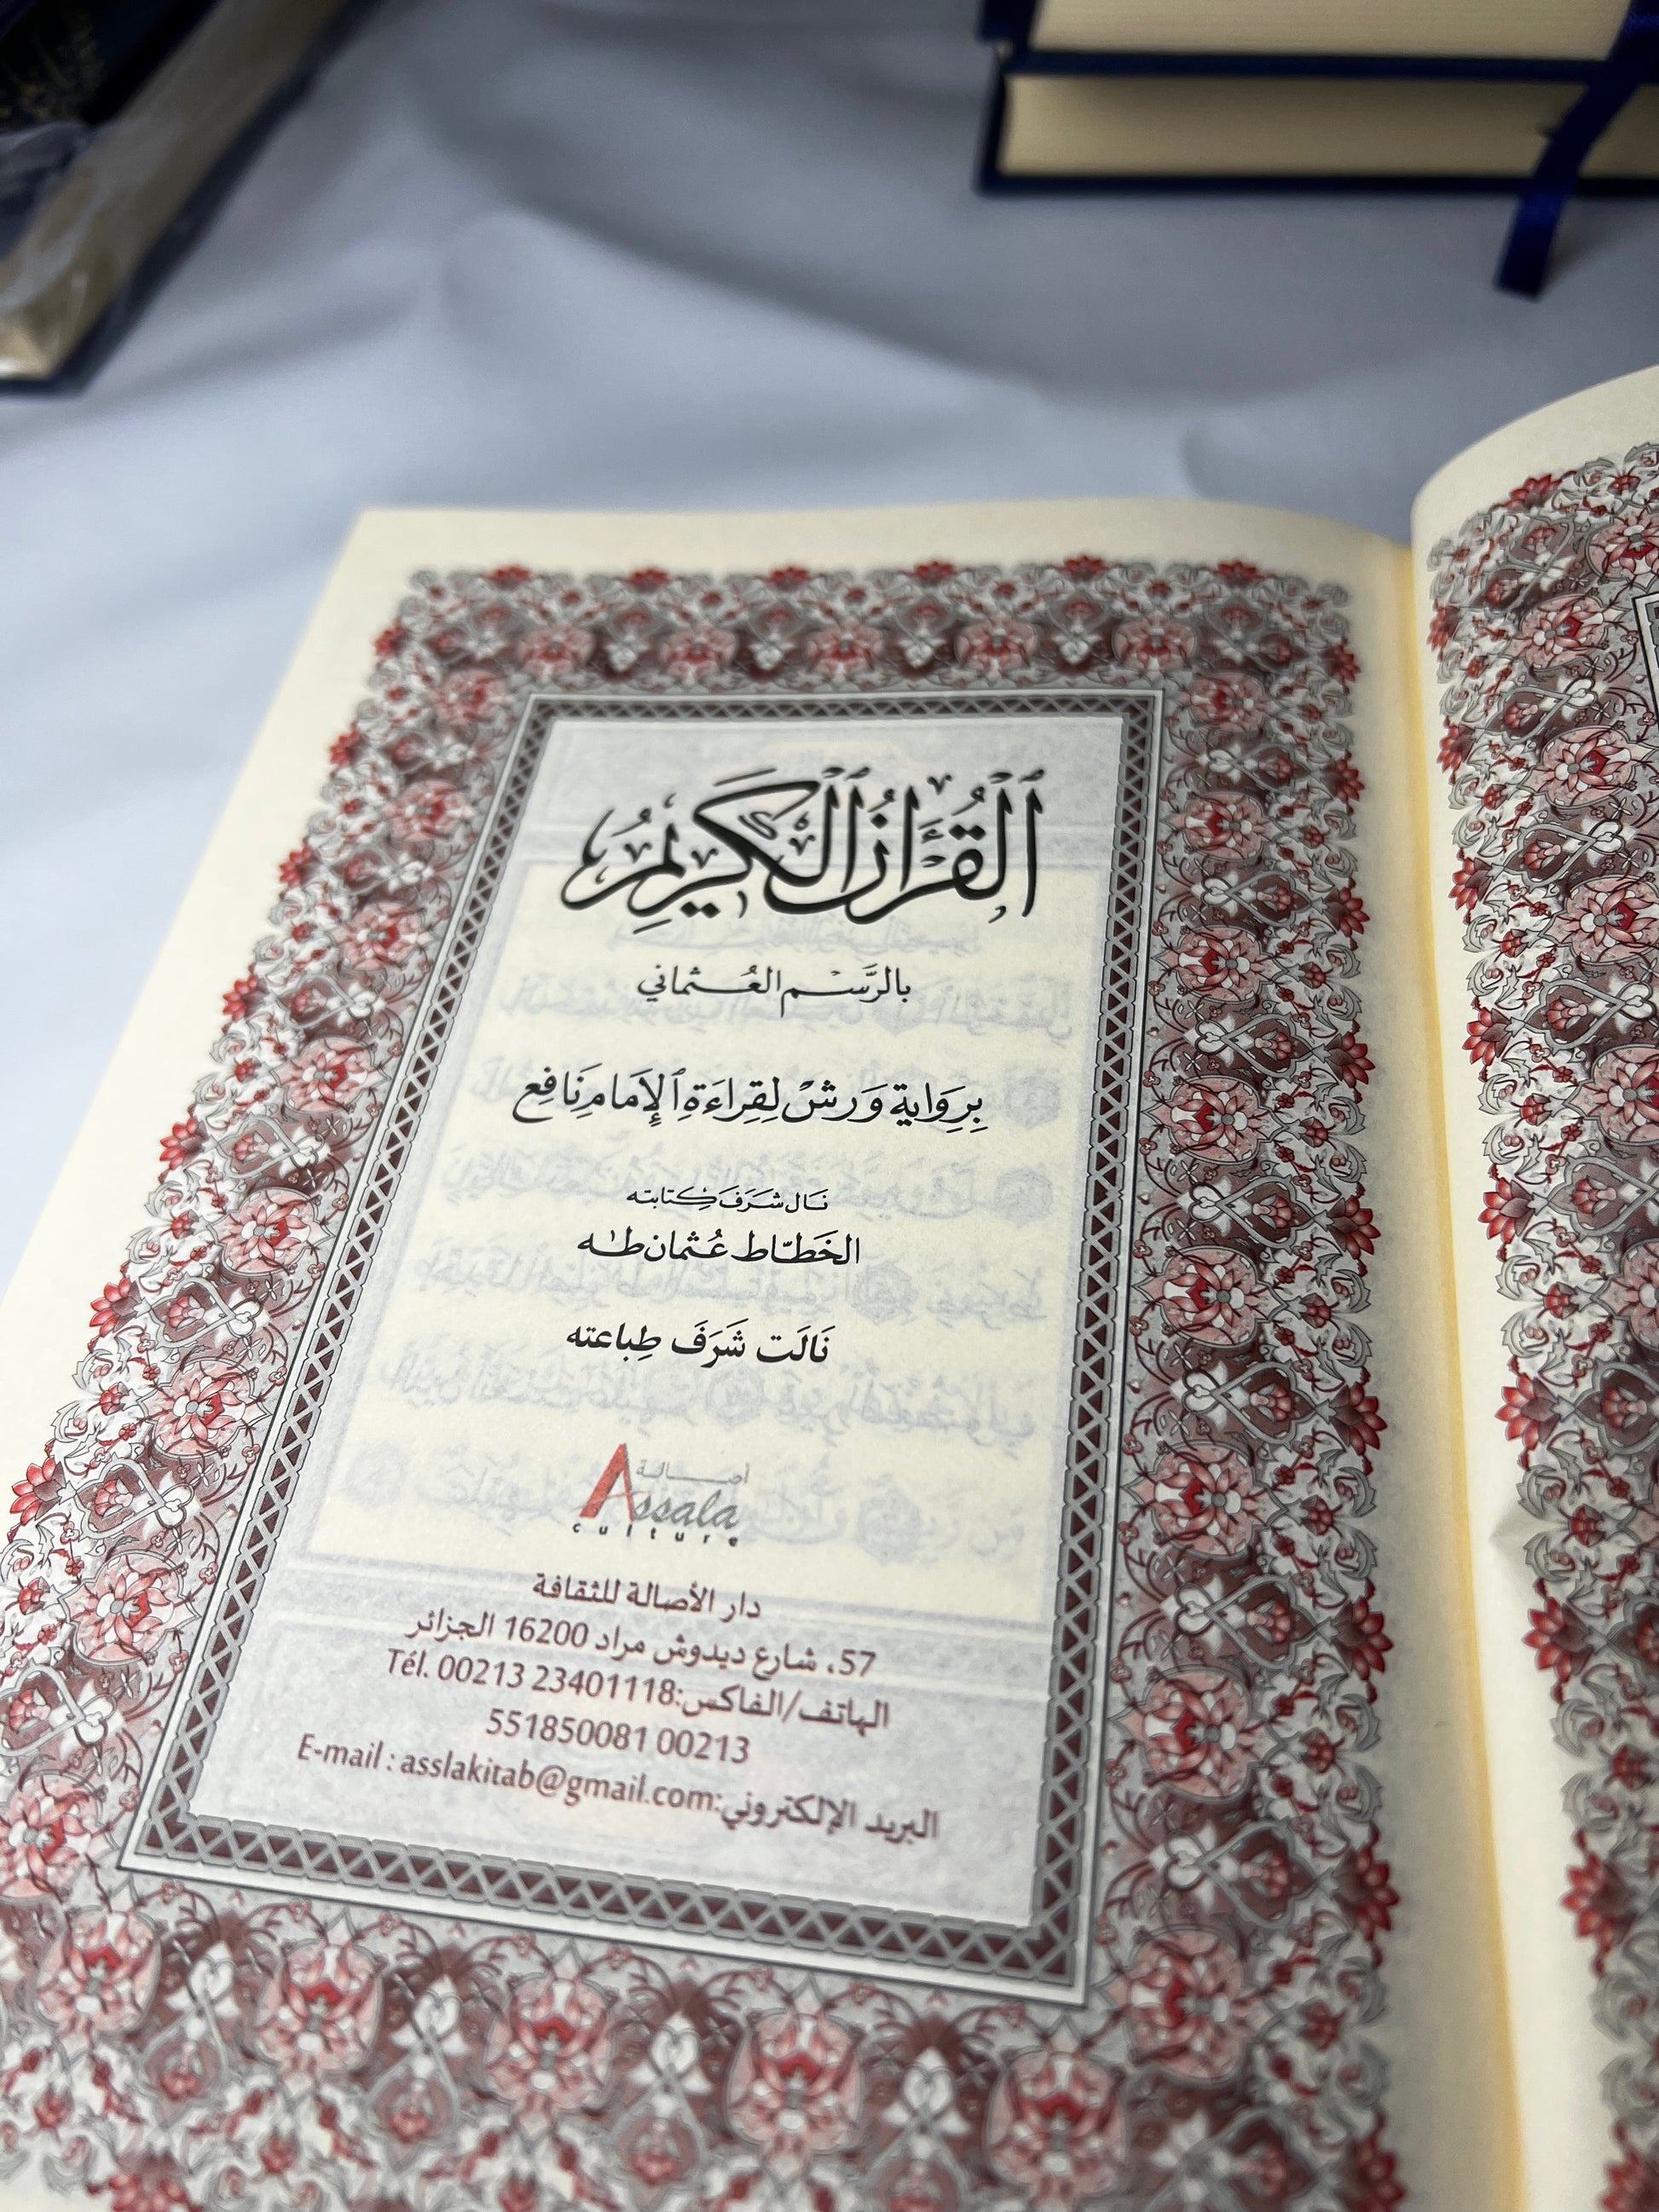 ٱلْقُرْءَانُ ٱلْكَرِيمُ
بالرَّسْم العُثماني
بِرِوَايةِ وَرشْ لِقِرَاءَةِ ٱلإِمَامِ نَافِع
نَال شَرَفَ كِتابته
الخَطّاط عُثمان طٰه
نَالَت شَرَفَ طِباعته
أصالة
Assala
culture
دار الأصالة للثقافة
57، شارع ديدوش مراد 16200 الجزائر
الهاتف/الفاكس:Tél. 00213 23401118
551850081 00213
البريد الإلكتروني:E-mail : asslakitab@gmail.com